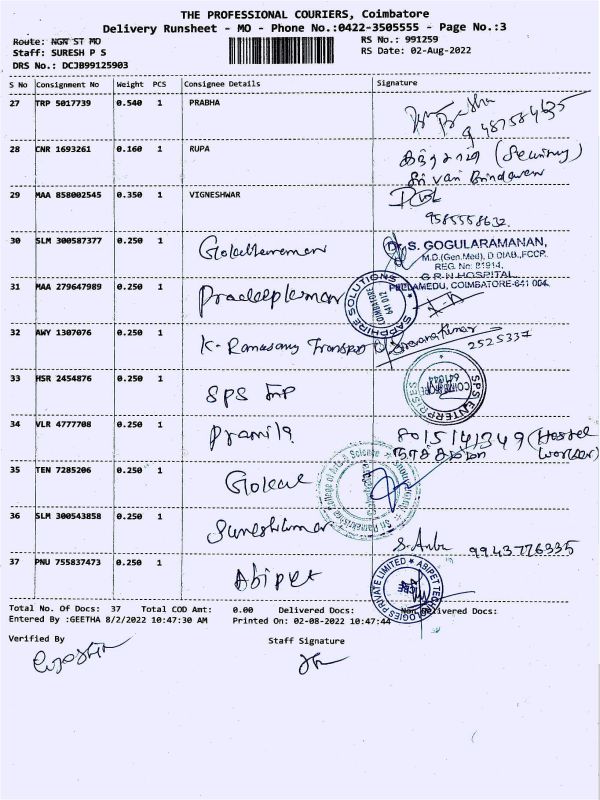 THE PROFESSIONAL COURIERS, Coimbatore
Delivery Runsheet - MO - Phone No.:0422-3505555 - Page No.:3
Route: NGN ST MO
RS No.: 991259
Staff: SURESH P S
RS Date: 02-Aug-2022
DRS No.: DCJB99125903
S No Consignment No Weight PCS Consignee Details Signature
27 TRP 5017739 0.540 1 PRABHA
Prabha
9487584635
28 CNR 1693261 0.160 1 RUPA
(Security)
Sri Vari Brindavan
29 MAA 858002545 0.350 1 VIGNESHWAR
9585558632
30 SLM 300587377 0.250 1
Dr. S. GOGULARAMANAN,
M.D.(Gen.Med), D.DIAB.,FCCP.
REG. No: 81914,
G R N HOSPITAL
PEELAMEDU, COIMBATORE-641 004.
31 MAA 279647989 0.250 1 Pradeepkumar
SAPPHIRE SOLUTIONS
COIMBATORE
641 012
32 AWY 1307076 0.250 1 K- Ramasamy Transport Saravanakumar
2525337
33 HSR 2454876 0.250 1 SPS Imp
SPS ENTERPRISES
COIMBATORE
641044
34 VLR 4777708 0.250 1 Pramila 8015141349 (Hostel
worker)
35 TEN 7285206 0.250 1 Gokul
36 SLM 300543858 0.250 1 Sureshkumar
9943776335
37 PNU 755837473 0.250 1 Abipet
ABIPET TECHNOLOGIES PRIVATE LIMITED
CBE
Total No. Of Docs: 37 Total COD Amt: 0.00 Delivered Docs: Non Delivered Docs:
Entered By :GEETHA 8/2/2022 10:47:30 AM Printed On: 02-08-2022 10:47:44
Verified By Staff Signature